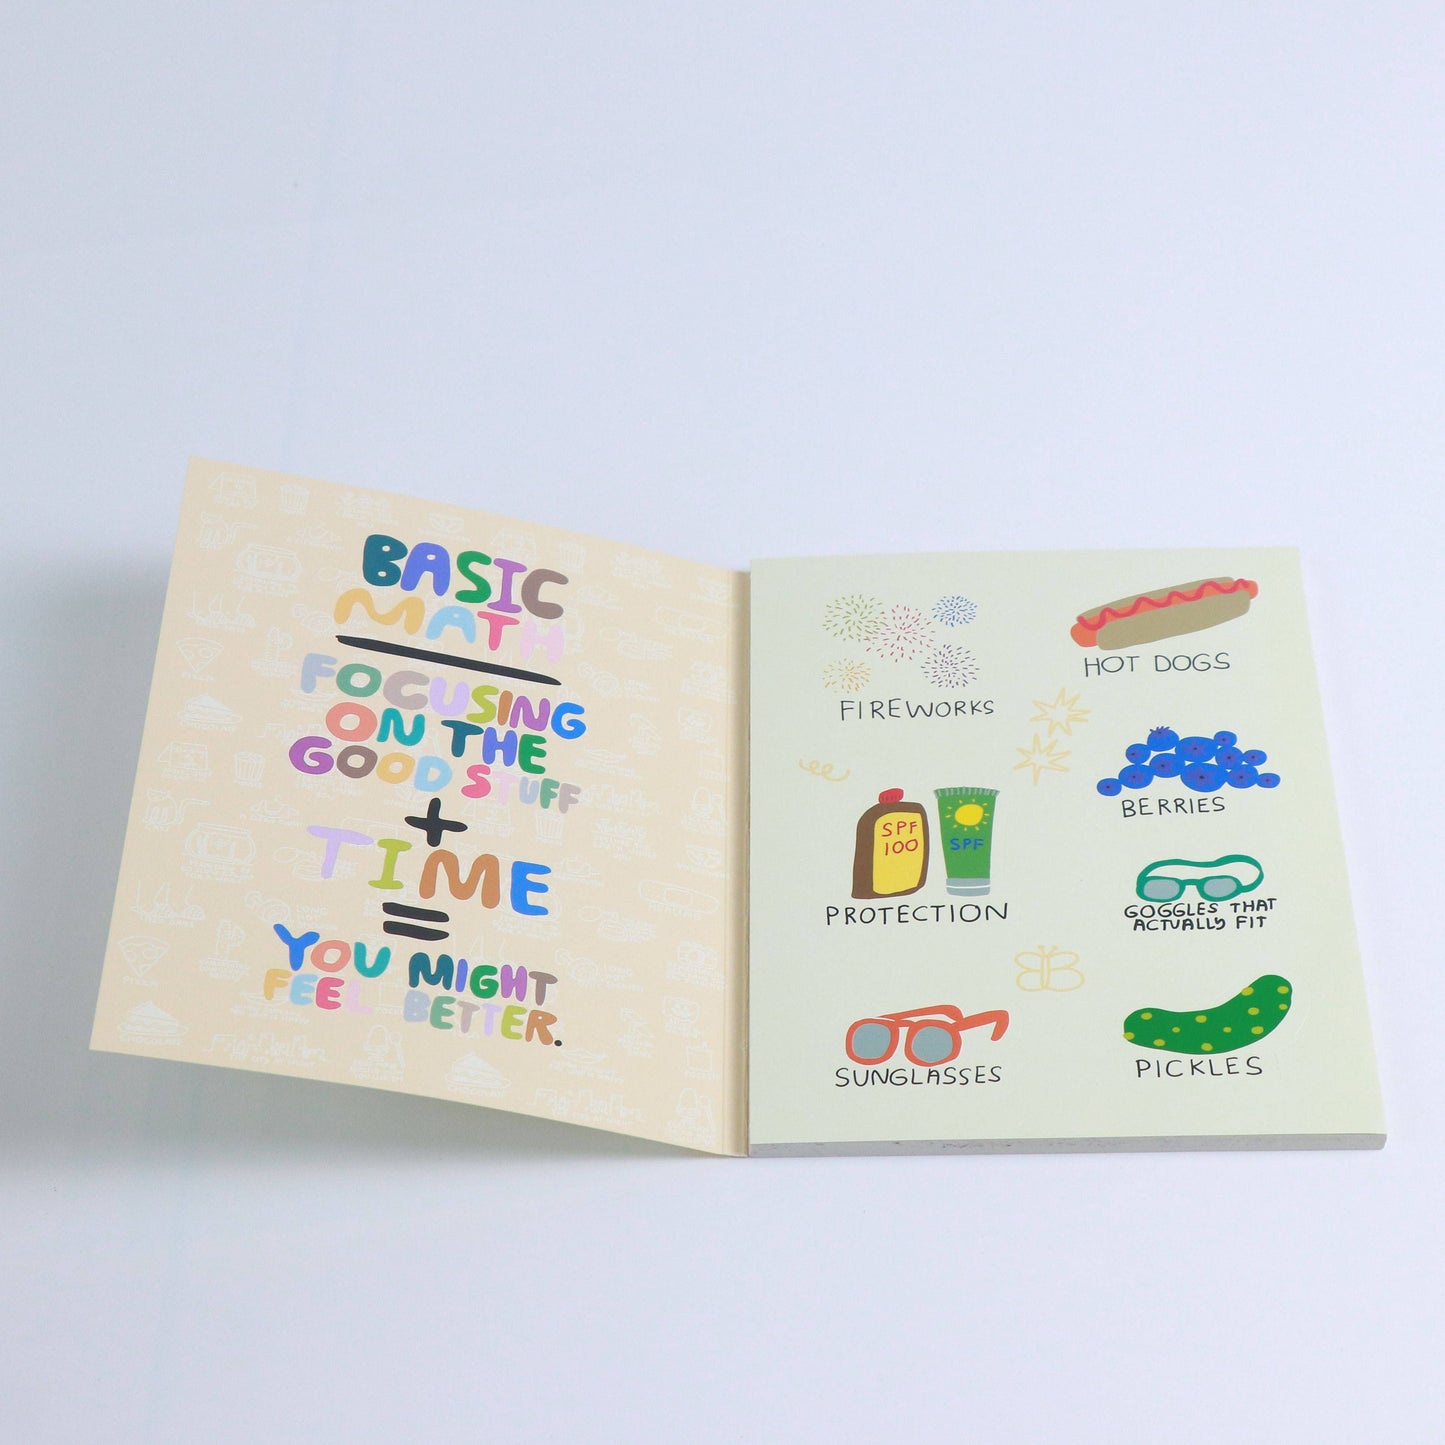 BASIC
MATH
FOCUSING
ON THE
GOOD STUFF
+
TIME
=
YOU MIGHT
FEEL BETTER.
FIREWORKS
HOT DOGS
BERRIES
SPF
100
SPF
PROTECTION
GOGGLES THAT
ACTUALLY FIT
SUNGLASSES
PICKLES